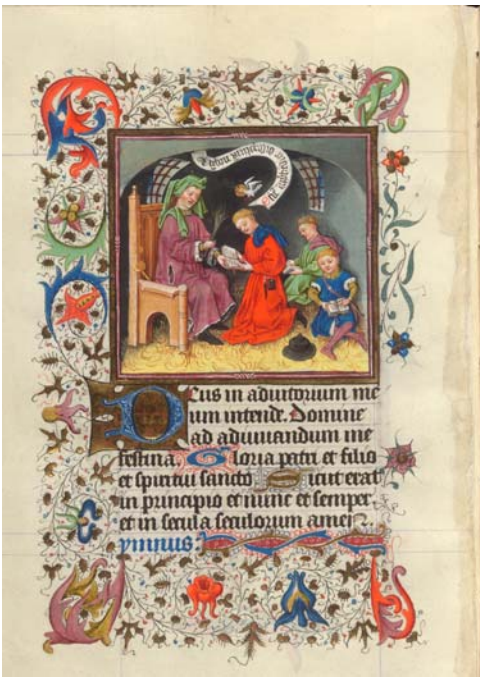 Deus in adiutorium me
um intende. Domine
ad adiuuandum me
festina. Gloria patri et filio
et spiritui sancto. Sicut erat
in principio et nunc et semper
et in secula seculorum amen.
ymnus.